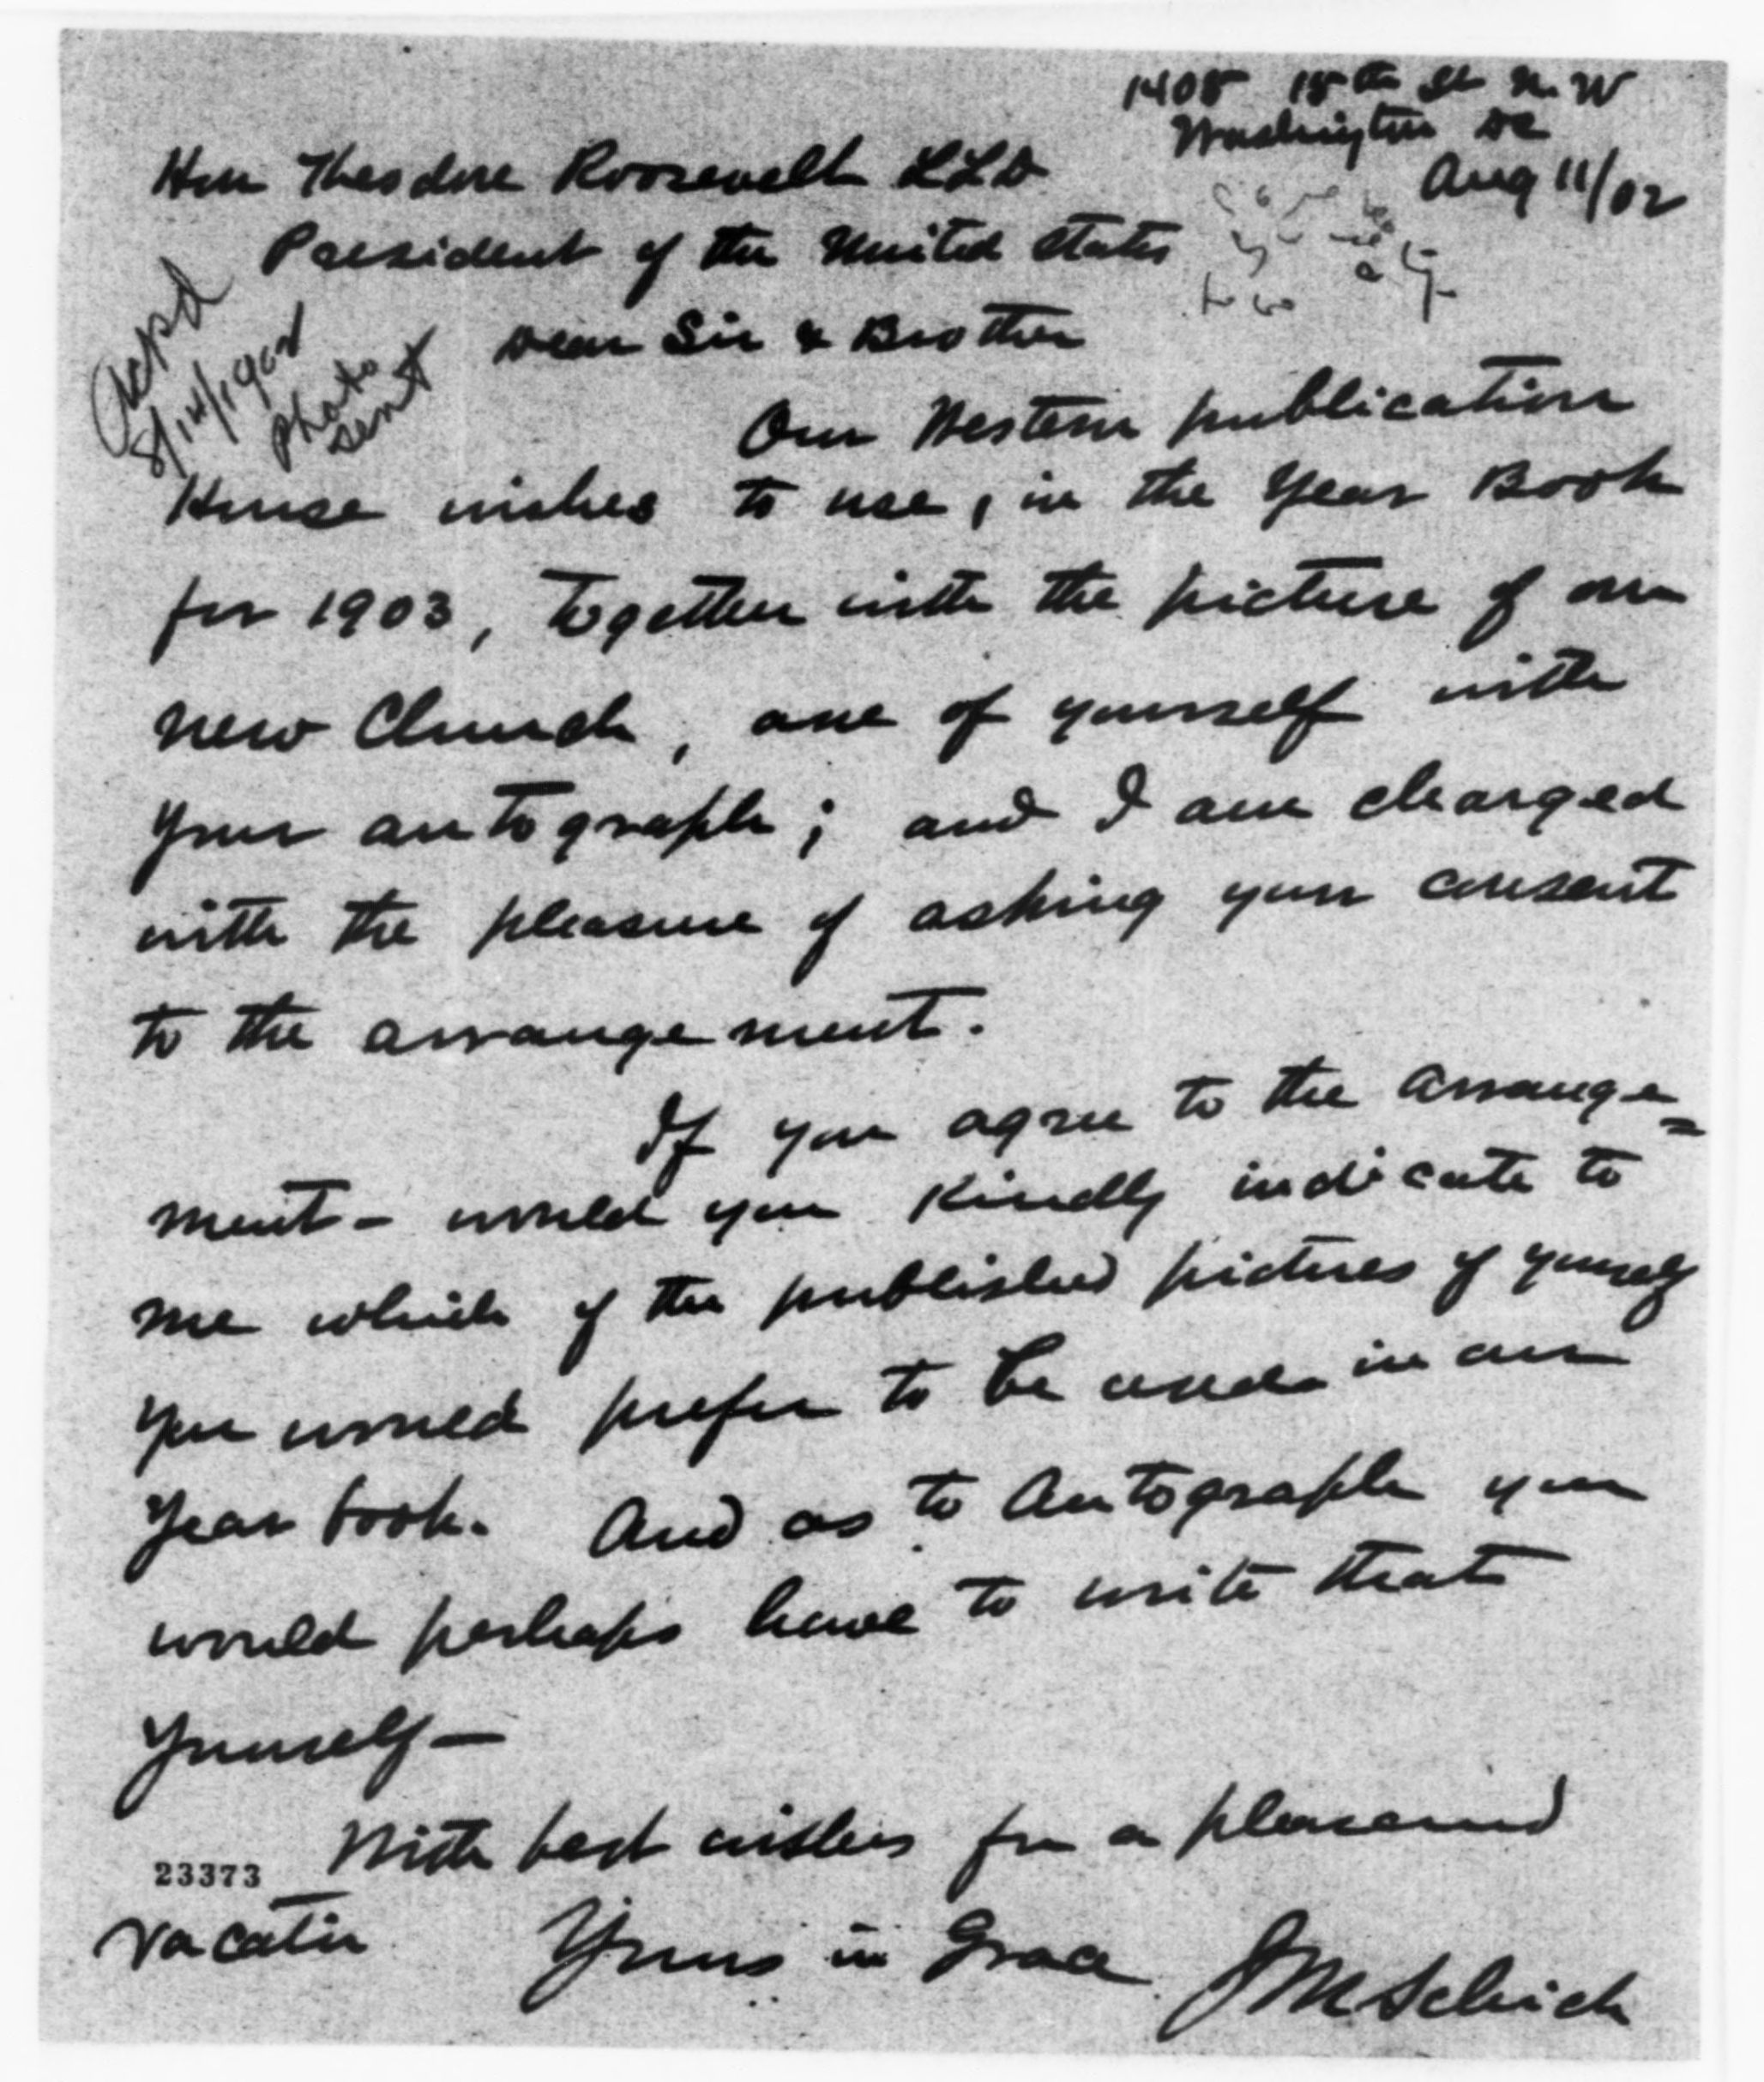 1408 15th St N. W
Washington DC
Aug 11/02
Hon Theodore Roosevelt LLD
President of the United States
Ackd
8/14/1902
Photo
sent
Dear Sir & Brother
Our Western publication
House wishes to use, in the Year Book
for 1903, together with the picture of our
new Church, one of yourself with
your autograph; and I am charged
with the pleasure of asking your consent
to the arrangement.
If you agree to the arrange=
ment - would you kindly indicate to
me which of the published pictures of yourself
you would prefer to be used in our
Year book. And as to Autograph you
would perhaps have to write that
yourself —
With best wishes for a pleasant
23373
vacation
Yours in Grace
J M Schick